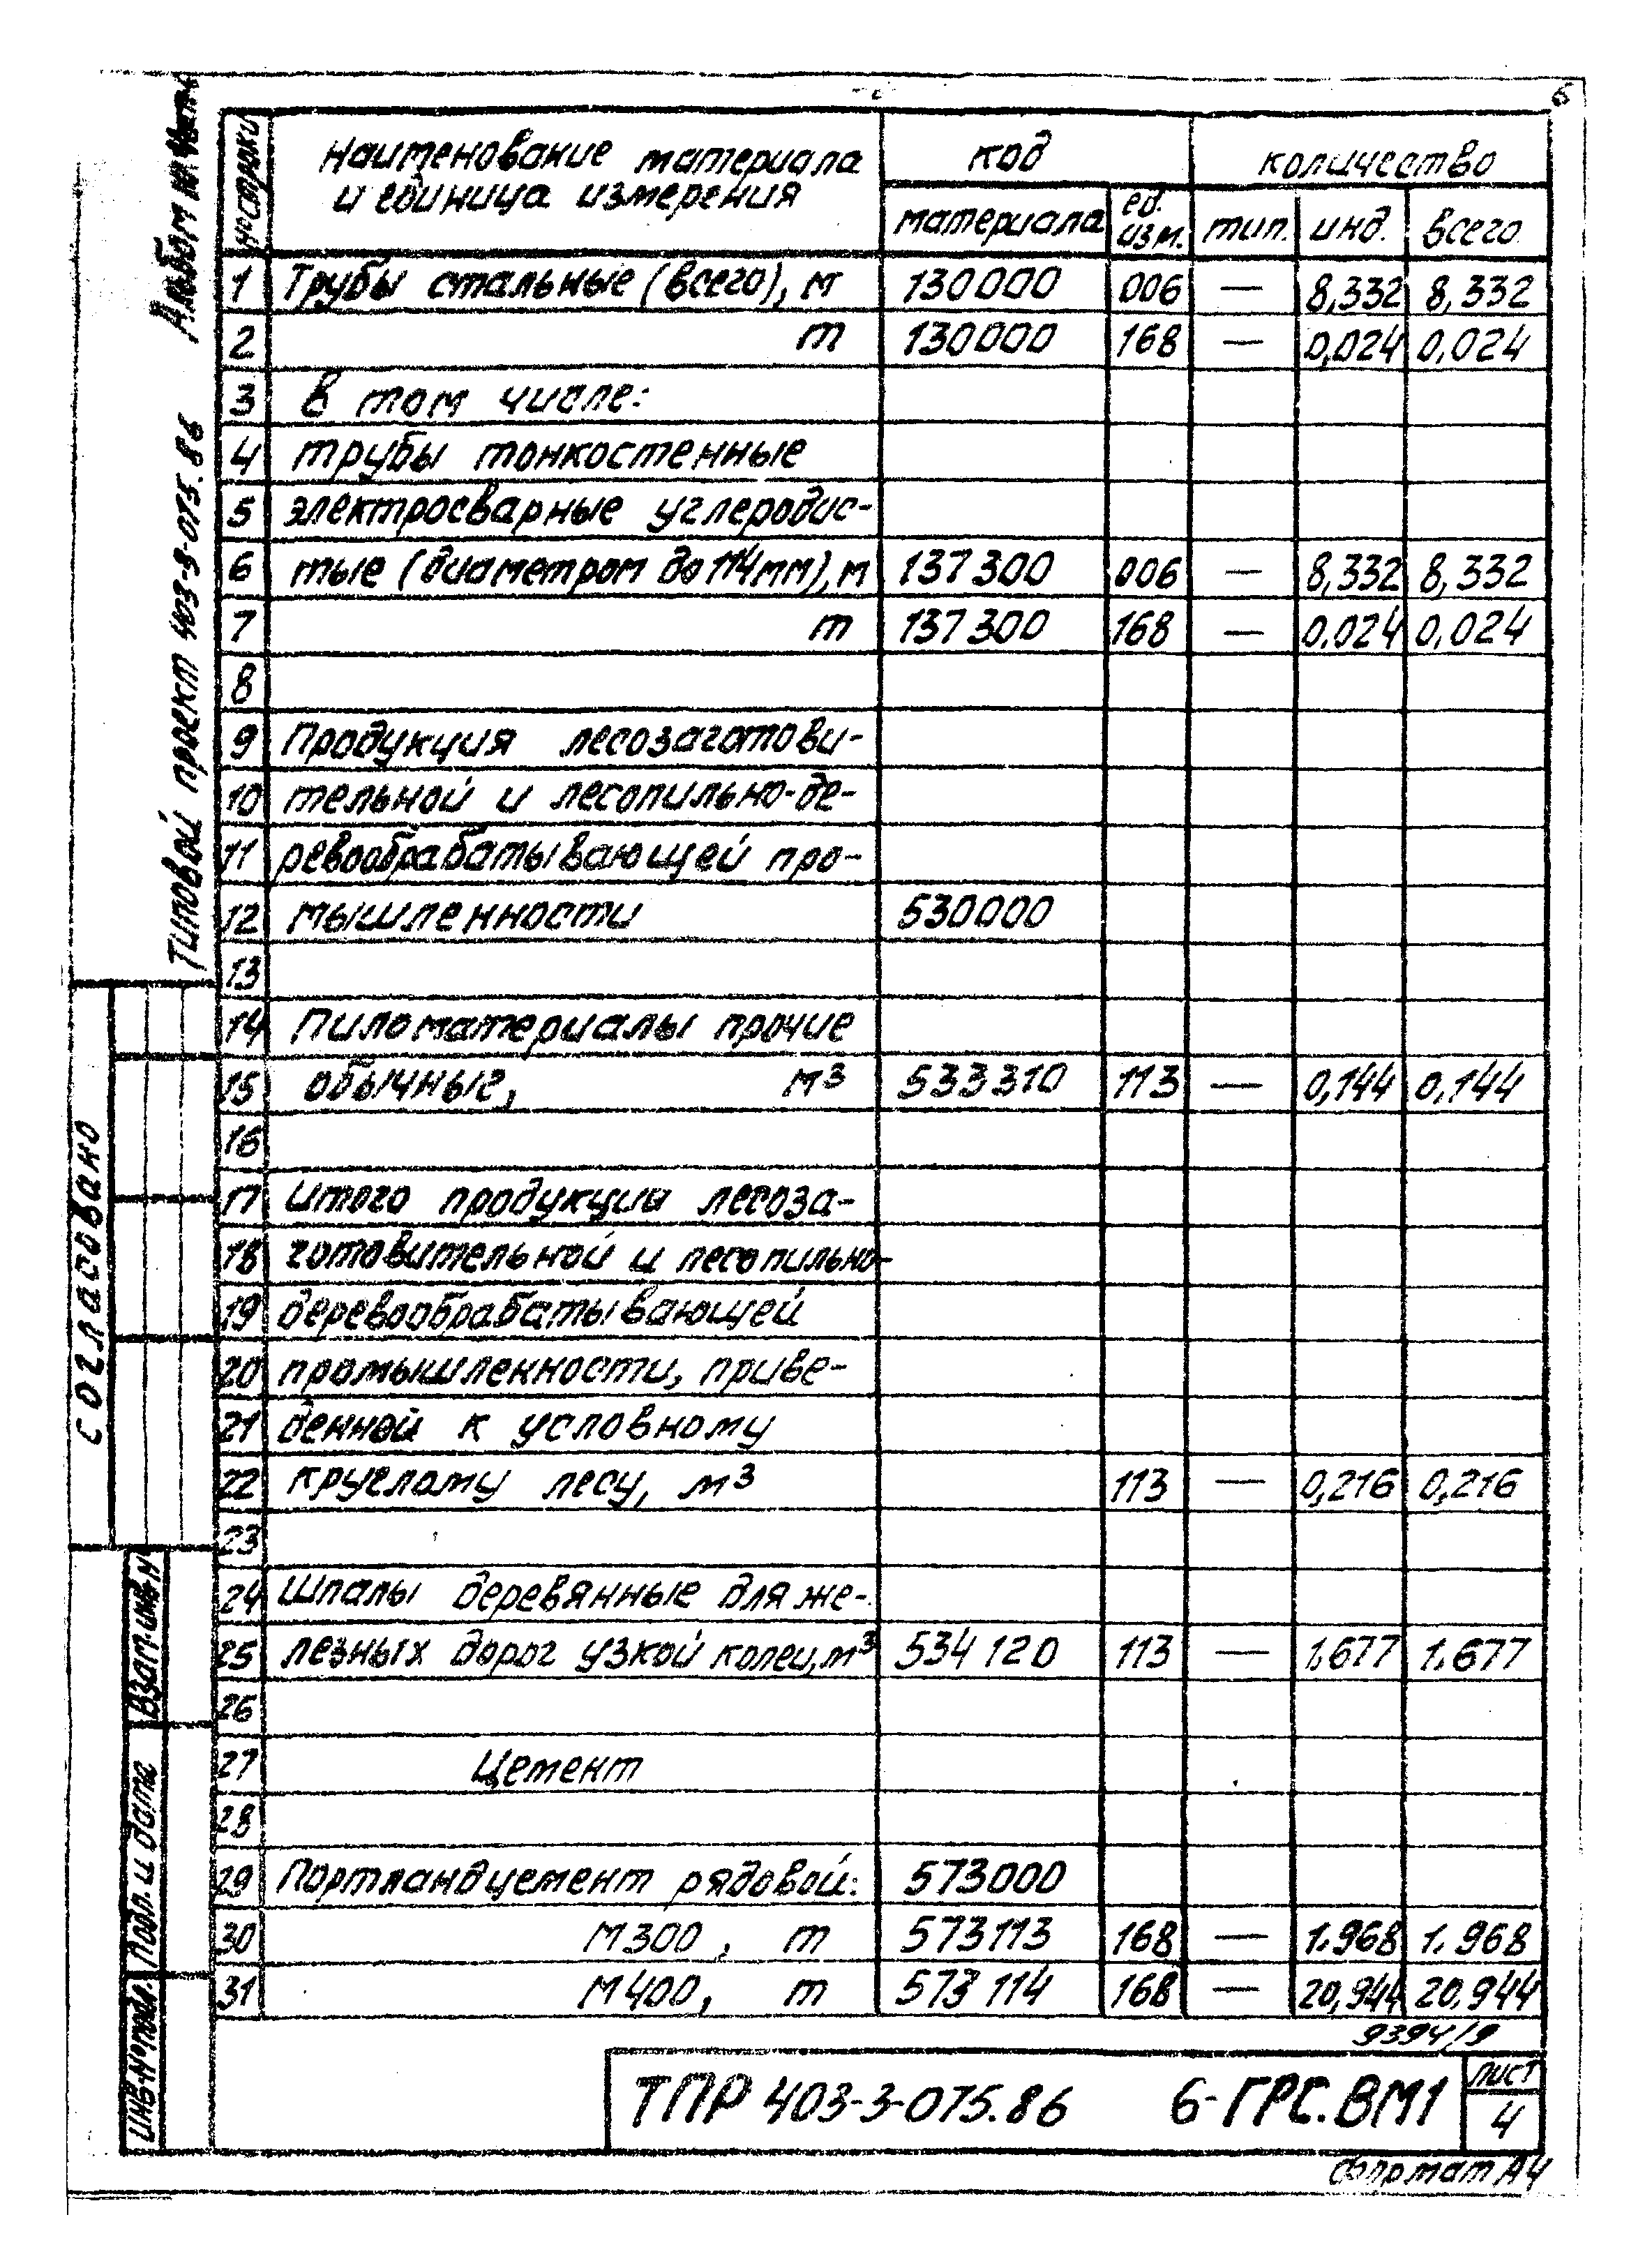 6
№ строки
Наименование материала и единица измерения
код
количество
материала
ед. изм.
тип.
инд.
всего
1 Трубы стальные (всего), м 130000 006 — 8,332 8,332
2 т 130000 168 — 0,024 0,024
3 В том числе:
4 трубы тонкостенные
5 электросварные углеродис-
6 тые (диаметром до 114 мм), м 137300 006 — 8,332 8,332
7 т 137300 168 — 0,024 0,024
8
9 Продукция лесозаготови-
10 тельной и лесопильно-де-
11 ревообрабатывающей про-
12 мышленности 530000
13
14 Пиломатериалы прочие
15 обычные, м³ 533310 113 — 0,144 0,144
16
17 Итого продукции лесоза-
18 готовительной и лесопильно-
19 деревообрабатывающей
20 промышленности, приве-
21 денной к условному
22 круглому лесу, м³ 113 — 0,216 0,216
23
24 Шпалы деревянные для же-
25 лезных дорог узкой колеи, м³ 534120 113 — 1.677 1.677
26
27 Цемент
28
29 Портландцемент рядовой: 573000
30 М300, т 573113 168 — 1.968 1.968
31 М400, т 573114 168 — 20,944 20,944
9394/9
ТПР 403-3-075.86 6-ГРС.ВМ1
лист
4
Формат А4
Типовой проект 403-3-075.86 Альбом
Согласовано
Взам. инв. №
Подп. и дата
Инв. № подл.